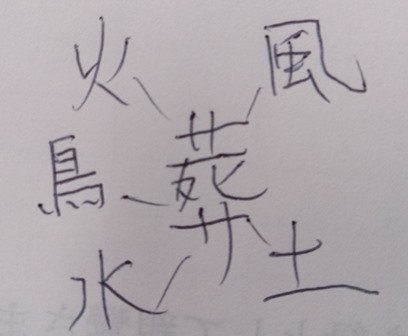 火 風
鳥 葬
水 土